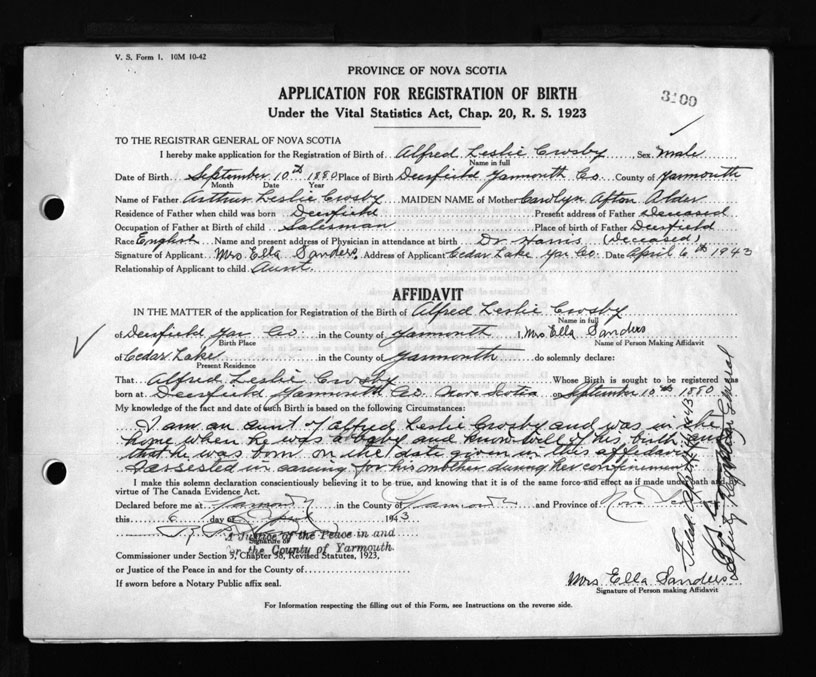 V. S. Form 1. 10M 10-42
PROVINCE OF NOVA SCOTIA
APPLICATION FOR REGISTRATION OF BIRTH
Under the Vital Statistics Act, Chap. 20, R. S. 1923
3100
TO THE REGISTRAR GENERAL OF NOVA SCOTIA
I hereby make application for the Registration of Birth of Alfred Leslie Crosby, Sex Male
Name in full
Date of Birth September 10th 1880 Place of Birth Deerfield Yarmouth Co. County of Yarmouth
Month Date Year
Name of Father Arthur Leslie Crosby MAIDEN NAME of Mother Carolyn Afton Alder
Residence of Father when child was born Deerfield Present address of Father Deceased
Occupation of Father at Birth of child Salesman Place of birth of Father Deerfield
Race English Name and present address of Physician in attendance at birth Dr Harris (Deceased)
Signature of Applicant Mrs Ella Sanders. Address of Applicant Cedar Lake Yar Co. Date April 6th 1943
Relationship of Applicant to child Aunt.
AFFIDAVIT
IN THE MATTER of the application for Registration of the Birth of Alfred Leslie Crosby
Name in full
of Deerfield Yar Co in the County of Yarmouth I, Mrs Ella Sanders
Birth Place Name of Person Making Affidavit
of Cedar Lake in the County of Yarmouth do solemnly declare:
Present Residence
That Alfred Leslie Crosby Whose Birth is sought to be registered was
born at Deerfield Yarmouth Co. Nova Scotia on September 10th 1880
My knowledge of the fact and date of such Birth is based on the following Circumstances:
I am an aunt of Alfred Leslie Crosby and was in the
home when he was a baby and know well of his birth and
that he was born on the date given in this affidavit
I assested in careing for his mother during her confinement
I make this solemn declaration conscientiously believing it to be true, and knowing that it is of the same force and effect as if made under oath and by
virtue of The Canada Evidence Act.
Declared before me at Yarmouth in the County of Yarmouth and Province of Nova Scotia
this 6 day of April 1943
A Justice of the Peace in and
Signature of
for the County of Yarmouth.
Commissioner under Section 5, Chapter 38, Revised Statutes, 1923,
or Justice of the Peace in and for the County of
If sworn before a Notary Public affix seal.
Mrs Ella Sanders
Signature of Person making Affidavit
For Information respecting the filling out of this Form, see Instructions on the reverse side.
Filed April
Deputy Registrar General